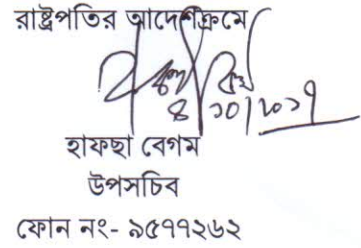 রাষ্ট্রপতির আদেশক্রমে
৪/১০/২০১৭
হাফছা বেগম
উপসচিব
ফোন নং- ৯৫৭৭২৬২